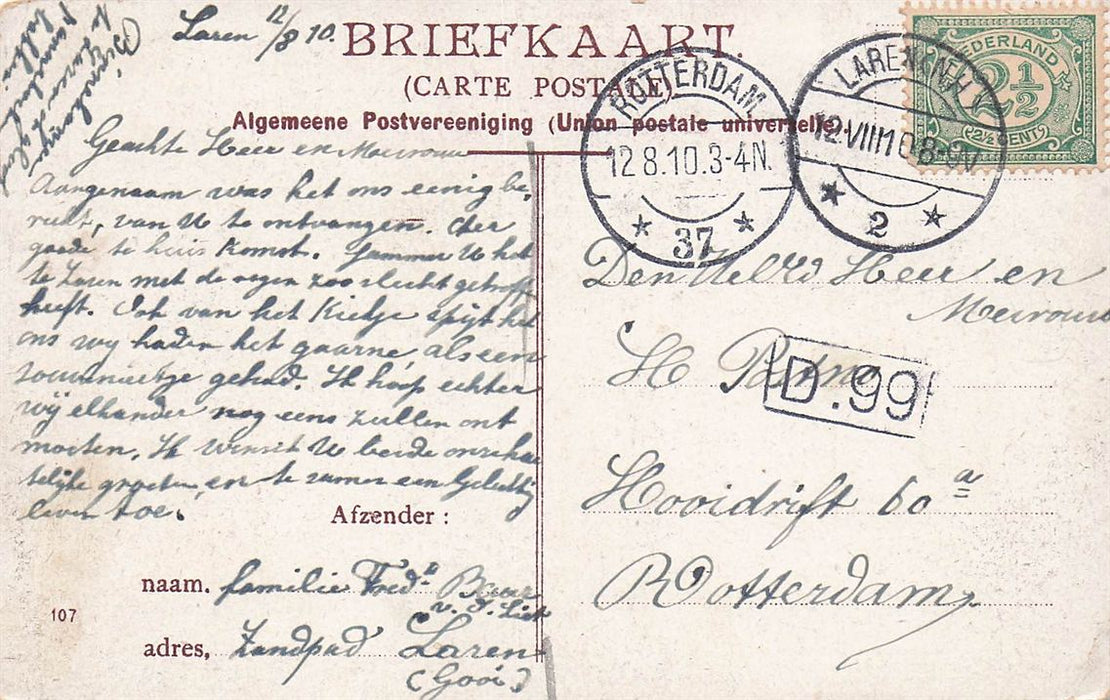 Laren 12/8 10.
BRIEFKAART.
(CARTE POSTALE)
Algemeene Postvereeniging (Union postale universelle)
NEDERLAND
2½
2½ CENT
ROTTERDAM
12.8.10.3-4N.
37
LAREN (N.H.)
12.VIII.10 8-9V
2
Geachte Heer en Mevrouw
Aangenaam was het ons eenig be,
richt, van U te ontvangen. der
goede te huis komst. Jammer U het
te Laren met de regen zoo slecht getroff
heeft. Ook van het Kiekje spijt het
ons wij hadden het gaarne als een
souveniertje gehad. Ik hoop echter
wij elkander nog eens zullen ont
moeten. Ik wenscht U beide onze har
telijke groeten, en te samen een Gelukkig
leven toe.
Den WelEd Heer en
Mevrouw
H
D.99
Hooidrift 60a
Rotterdam
Afzender:
naam. familie Fred
adres, Zandpad Laren
(Gooi)
107